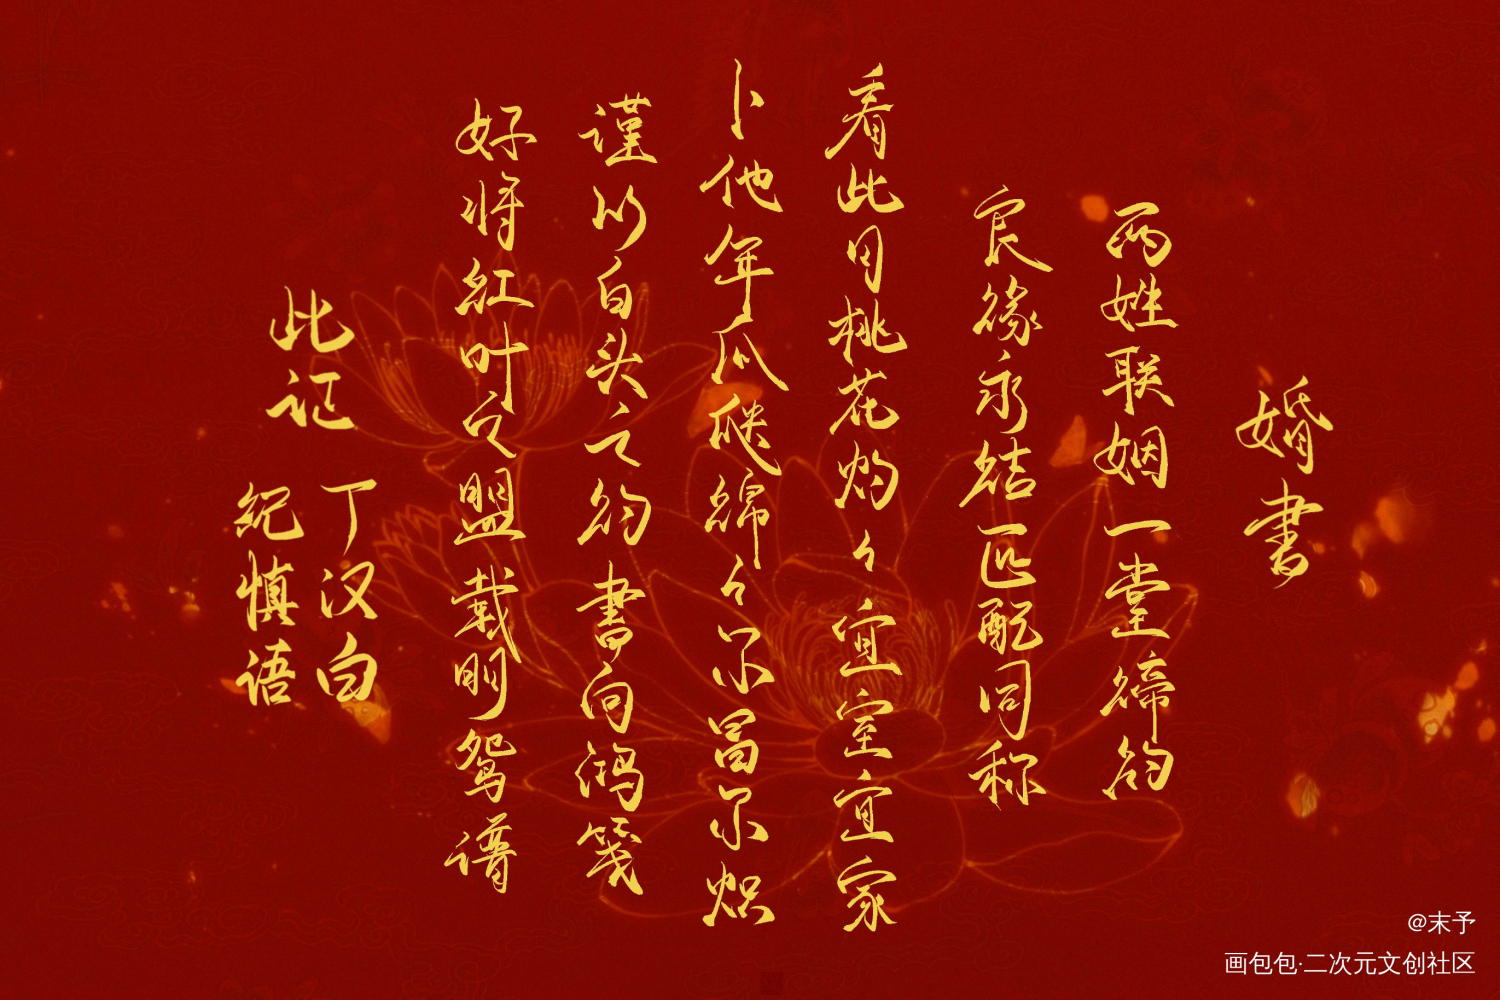 婚書
两姓联姻一堂締約
良緣永結匹配同称
看此日桃花灼々宜室宜家
卜他年瓜瓞綿々尔昌尔炽
谨以白头之約書向鸿笺
好将紅叶之盟载明鸳谱
此证
丁汉白
紀慎语
@末予
画包包·二次元文创社区